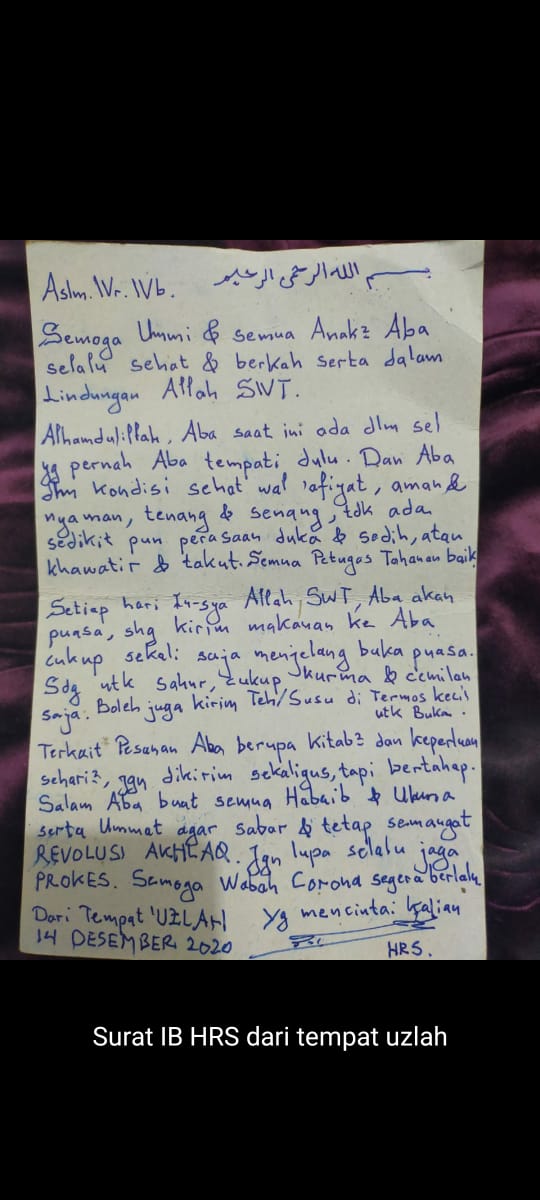 بسم الله الرحمن الرحيم
Aslm. Wr. Wb.
Semoga Ummi & semua Anak2 Aba
selalu sehat & berkah serta dalam
Lindungan Allah SWT.
Alhamdulillah, Aba saat ini ada dlm sel
yg pernah Aba tempati dulu. Dan Aba
dlm kondisi sehat wal 'afiyat, aman &
nyaman, tenang & senang, tdk ada
sedikit pun perasaan duka & sedih, atau
khawatir & takut. Semua Petugas Tahanan baik
Setiap hari In-sya Allah SWT, Aba akan
puasa, shg kirim makanan ke Aba
cukup sekali saja menjelang buka puasa.
Sdg utk Sahur, cukup kurma & cemilan
saja. Boleh juga kirim Teh/Susu di Termos kecil
utk Buka.
Terkait Pesanan Aba berupa Kitab2 dan keperluan
sehari2, jgn dikirim sekaligus, tapi bertahap.
Salam Aba buat semua Habaib & Ulama
serta Ummat agar sabar & tetap semangat
REVOLUSI AKHLAQ. Jgn lupa selalu jaga
PROKES. Semoga Wabah Corona segera berlalu
Dari Tempat 'UZLAH Yg mencintai kalian
14 DESEMBER 2020
HRS.
Surat IB HRS dari tempat uzlah